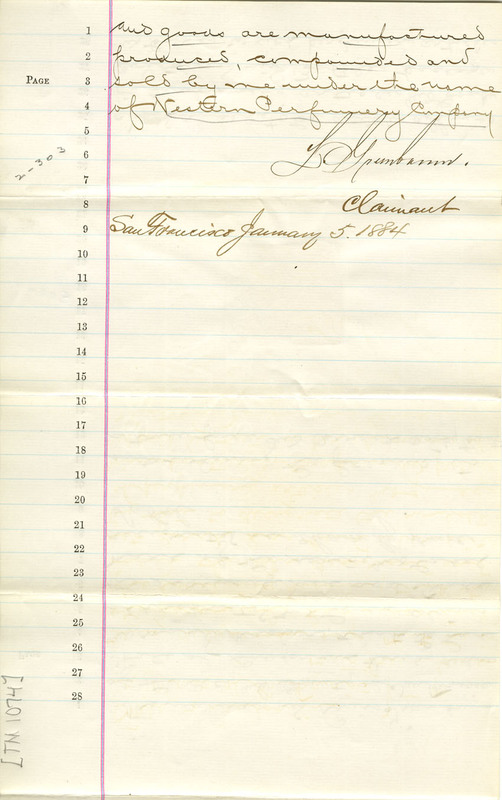 1 and goods are manufactured
2 produced, compounded and
PAGE 3 sold by me under the name
4 of Western Perfumery Company
5
6 L
7
8 Claimant
9 San Francisco January 5. 1884
10
11
12
13
14
15
16
17
18
19
20
21
22
23
24
25
26
27
28
2-303
[TN 1074]